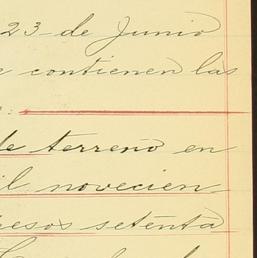 23 de Junio
contienen las
de terreno en
il novecien
pesos setenta